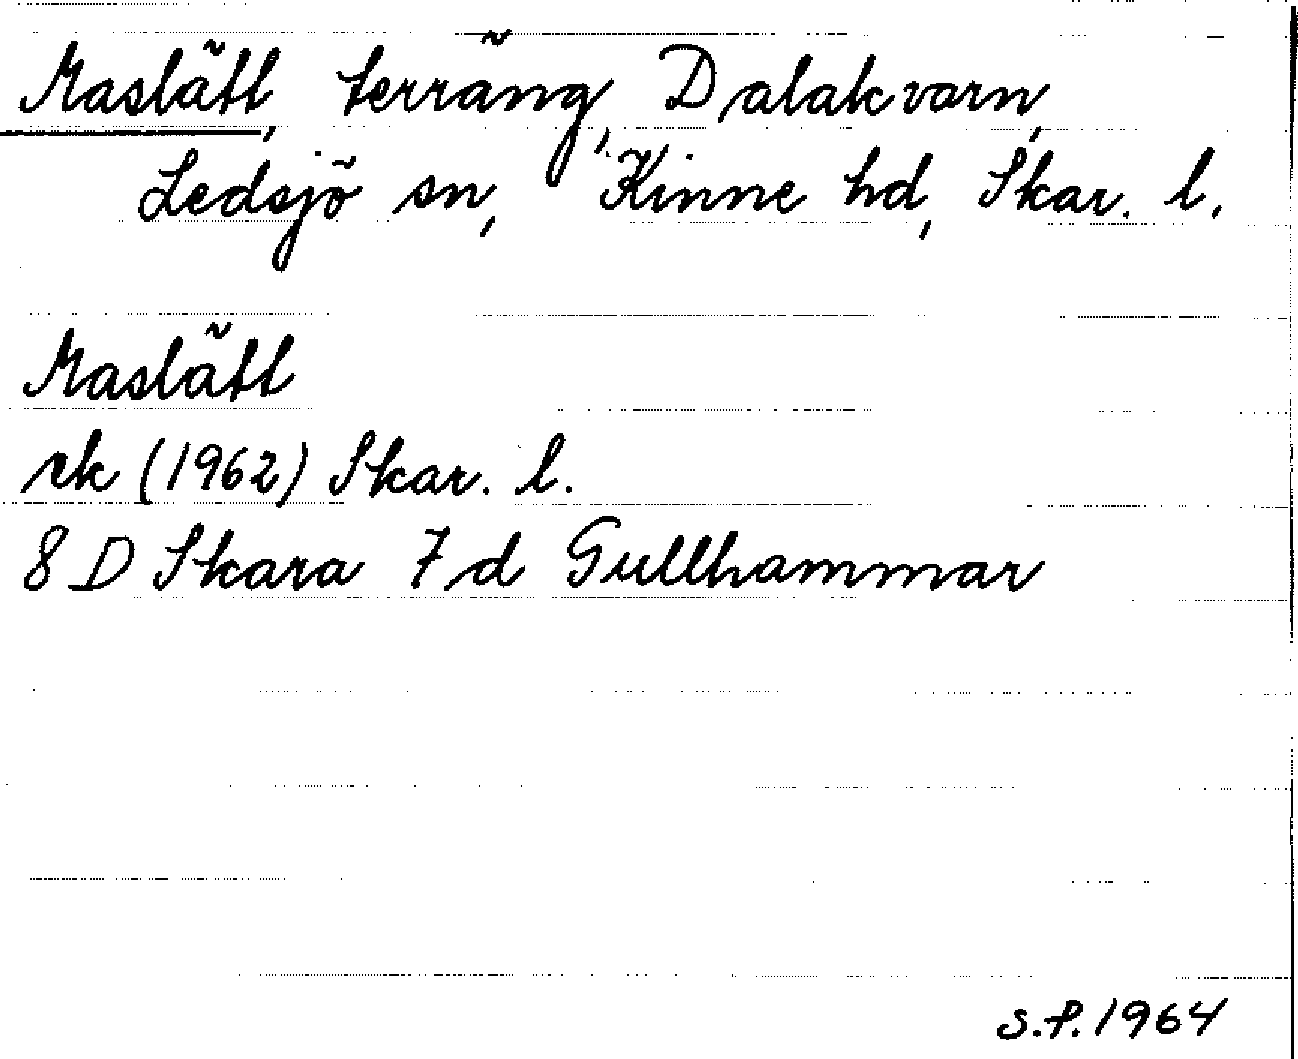 Maslätt, terräng, Dalakvarn,
Ledsjö sn, Kinne hd, Skar. l.
Maslätt
rk (1962) Skar. l.
8 D Skara 7 d Gullhammar
S.P. 1964